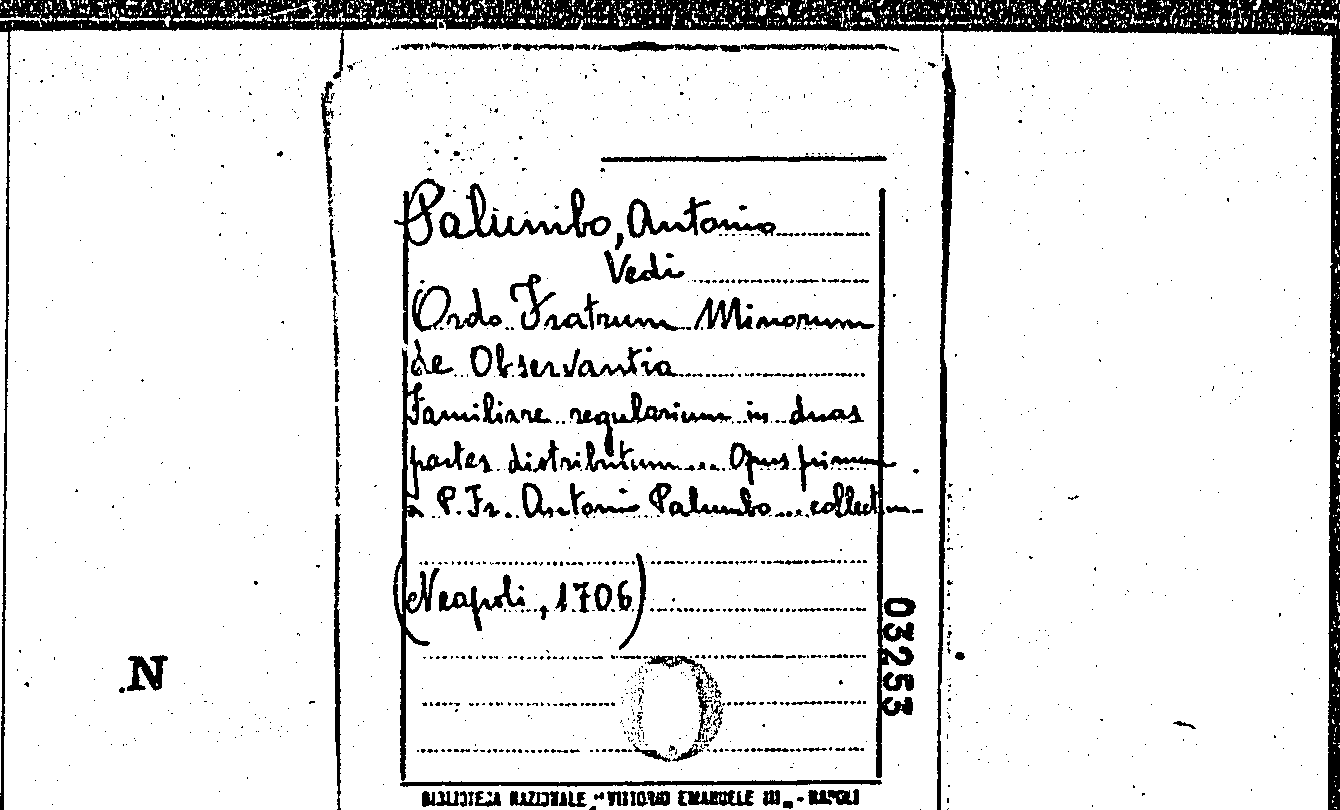 Palumbo, Antonio
Vedi
Ordo Fratrum Minorum
de Observantia
Familiare regularium in duas
partes distributum... Opus primum
a P. Fr. Antonio Palumbo... collectum
(Neapoli, 1706)
03253
N
BIBLIOTECA NAZIONALE "VITTORIO EMANUELE III" - NAPOLI